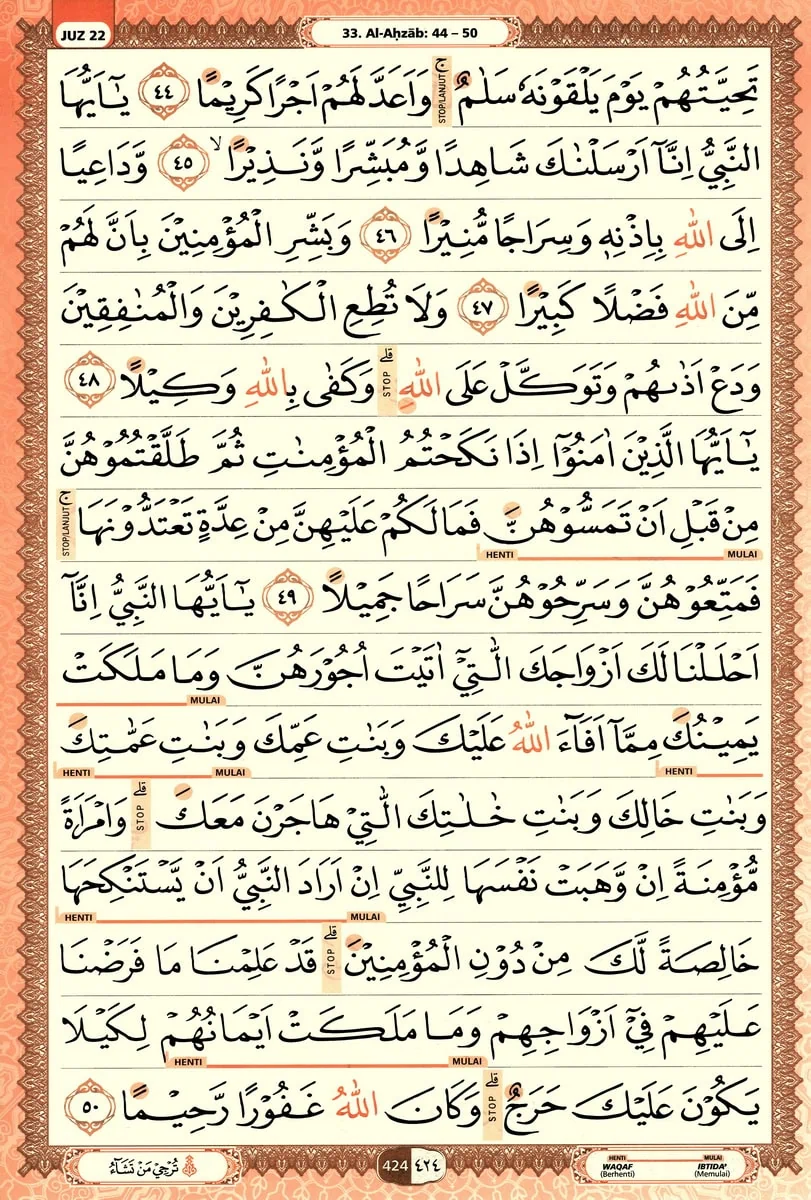 JUZ 22
33. Al-Aḥzāb: 44 – 50
تَحِيَّتُهُمْ يَوْمَ يَلْقَوْنَهٗ سَلٰمٌ ۚ STOP/LANJUT وَاَعَدَّ لَهُمْ اَجْرًا كَرِيْمًا ٤٤ يٰٓاَيُّهَا
النَّبِيُّ اِنَّآ اَرْسَلْنٰكَ شَاهِدًا وَّمُبَشِّرًا وَّنَذِيْرًا ۙ ٤٥ وَّدَاعِيًا
اِلَى اللّٰهِ بِاِذْنِهٖ وَسِرَاجًا مُّنِيْرًا ٤٦ وَبَشِّرِ الْمُؤْمِنِيْنَ بِاَنَّ لَهُمْ
مِّنَ اللّٰهِ فَضْلًا كَبِيْرًا ٤٧ وَلَا تُطِعِ الْكٰفِرِيْنَ وَالْمُنٰفِقِيْنَ
وَدَعْ اَذٰىهُمْ وَتَوَكَّلْ عَلَى اللّٰهِ ۗ STOP وَكَفٰى بِاللّٰهِ وَكِيْلًا ٤٨
يٰٓاَيُّهَا الَّذِيْنَ اٰمَنُوْٓا اِذَا نَكَحْتُمُ الْمُؤْمِنٰتِ ثُمَّ طَلَّقْتُمُوْهُنَّ
مِنْ قَبْلِ اَنْ تَمَسُّوْهُنَّ فَمَا لَكُمْ عَلَيْهِنَّ مِنْ عِدَّةٍ تَعْتَدُّوْنَهَا ۚ STOP/LANJUT
HENTI MULAI
فَمَتِّعُوْهُنَّ وَسَرِّحُوْهُنَّ سَرَاحًا جَمِيْلًا ٤٩ يٰٓاَيُّهَا النَّبِيُّ اِنَّآ
اَحْلَلْنَا لَكَ اَزْوَاجَكَ الّٰتِيْٓ اٰتَيْتَ اُجُوْرَهُنَّ وَمَا مَلَكَتْ
MULAI
يَمِيْنُكَ مِمَّآ اَفَاۤءَ اللّٰهُ عَلَيْكَ وَبَنٰتِ عَمِّكَ وَبَنٰتِ عَمّٰتِكَ
HENTI MULAI HENTI
وَبَنٰتِ خَالِكَ وَبَنٰتِ خٰلٰتِكَ الّٰتِيْ هَاجَرْنَ مَعَكَ ۗ STOP وَامْرَاَةً
مُّؤْمِنَةً اِنْ وَّهَبَتْ نَفْسَهَا لِلنَّبِيِّ اِنْ اَرَادَ النَّبِيُّ اَنْ يَّسْتَنْكِحَهَا
HENTI MULAI
خَالِصَةً لَّكَ مِنْ دُوْنِ الْمُؤْمِنِيْنَ ۗ STOP قَدْ عَلِمْنَا مَا فَرَضْنَا
عَلَيْهِمْ فِيْٓ اَزْوَاجِهِمْ وَمَا مَلَكَتْ اَيْمَانُهُمْ لِكَيْلَا
HENTI MULAI
يَكُوْنَ عَلَيْكَ حَرَجٌ ۗ STOP وَكَانَ اللّٰهُ غَفُوْرًا رَّحِيْمًا ٥٠
تُرْجِيْ مَنْ تَشَاۤءُ
424 ٤٢٤
HENTI MULAI
WAQAF IBTIDA'
(Berhenti) (Memulai)